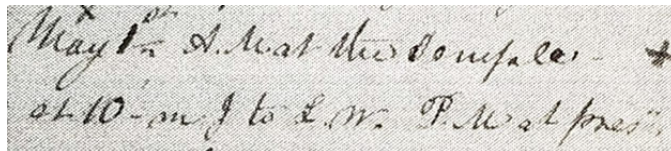 May 1st A.M. at the Temple. -
at. 10 - m J to L. W. P.M at pres